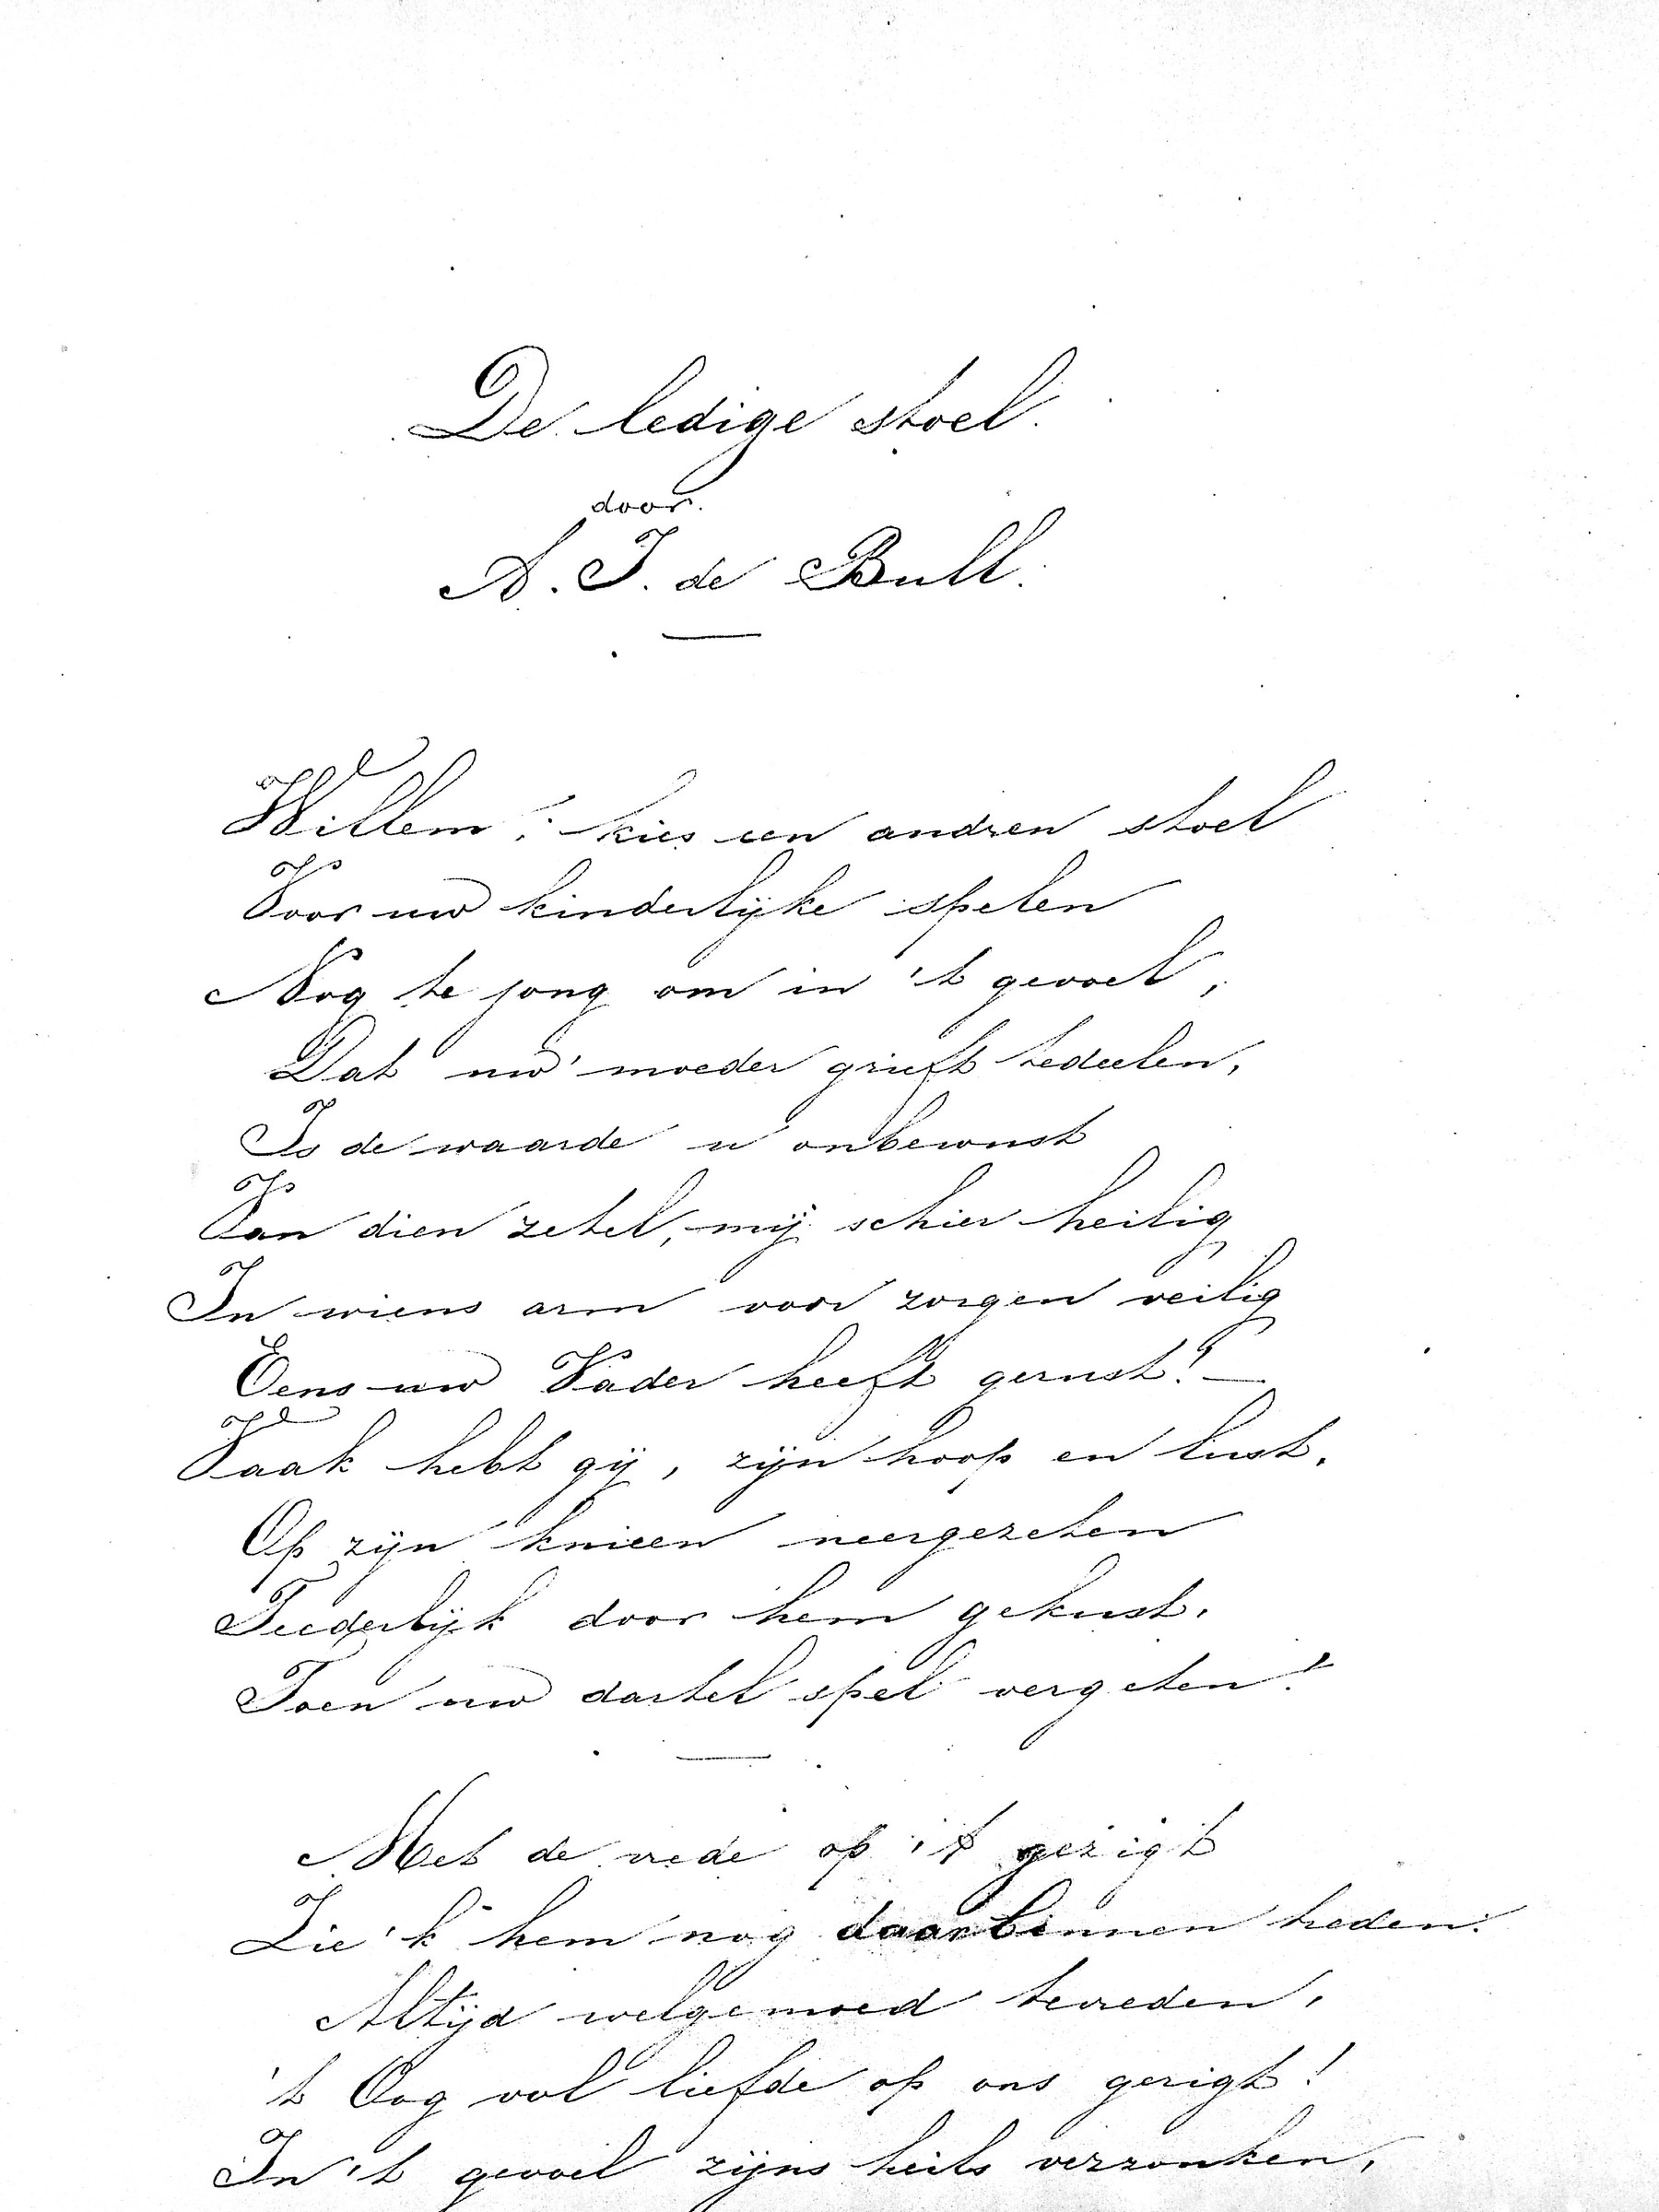 De ledige stoel.
door.
A. J. de Bull.
Willem! kies een andren stoel
Voor uw kinderlijke spelen
Nog te jong om in 't gevoel,
Dat uw moeder grieft te deelen,
Is de waarde u onbewust
Van dien zetel, mij schier heilig
In wiens arm voor zorgen veilig
Eens uw Vader heeft gerust! —
Vaak hebt gij, zijn hoop en lust,
Op zijn knieen neergezeten
Teederlijk door hem gekust,
Toen uw dartel spel vergeten!
Met de vrede op 't gezigt
Zie 'k hem nog daarbinnen heden.
Altijd welgemoed tevreden,
't Oog vol liefde op ons gerigt!
In 't gevoel zijns heils verzonken,